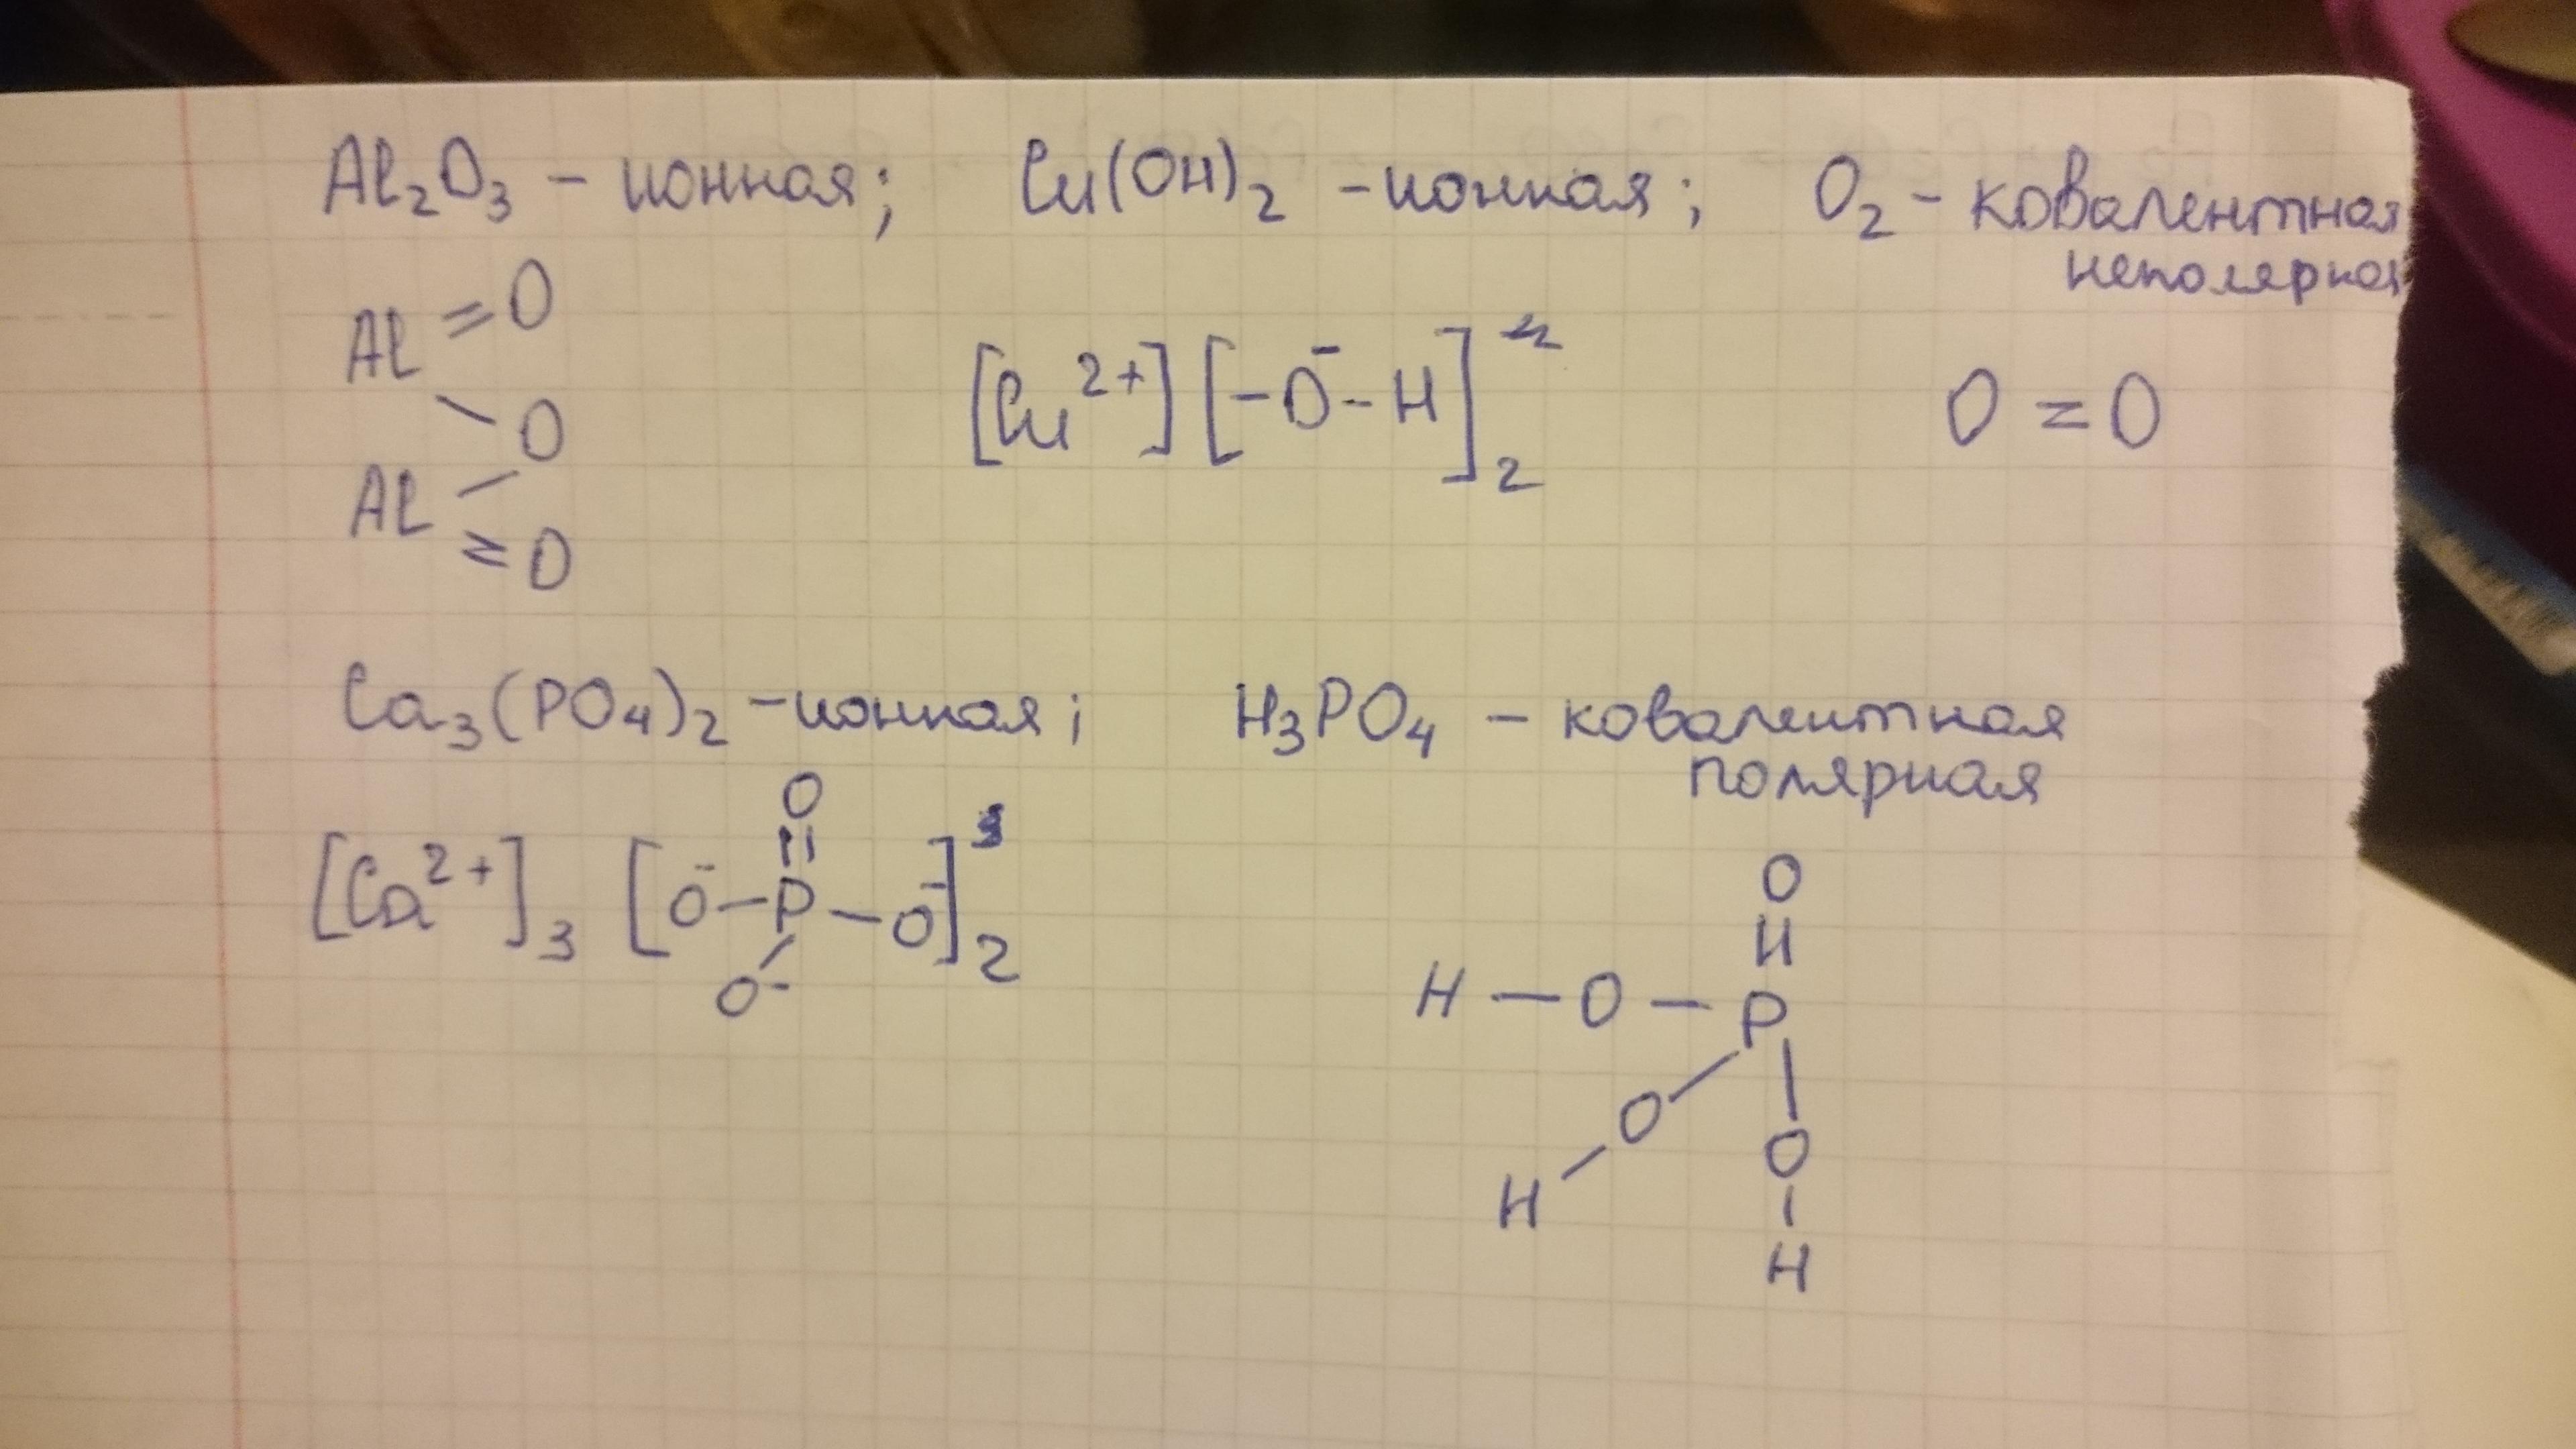 Al₂O₃ – ионная; Cu(OH)₂ – ионная; O₂ – ковалентная
неполярная
Al = O
[Cu²⁺] [–O⁻–H]₂
O = O
O
Al
= O
Ca₃(PO₄)₂ – ионная; H₃PO₄ – ковалентная
полярная
O
[Ca²⁺]₃ [O⁻–P–O⁻]₂
O⁻
O
H – O – P
O
O
H
H